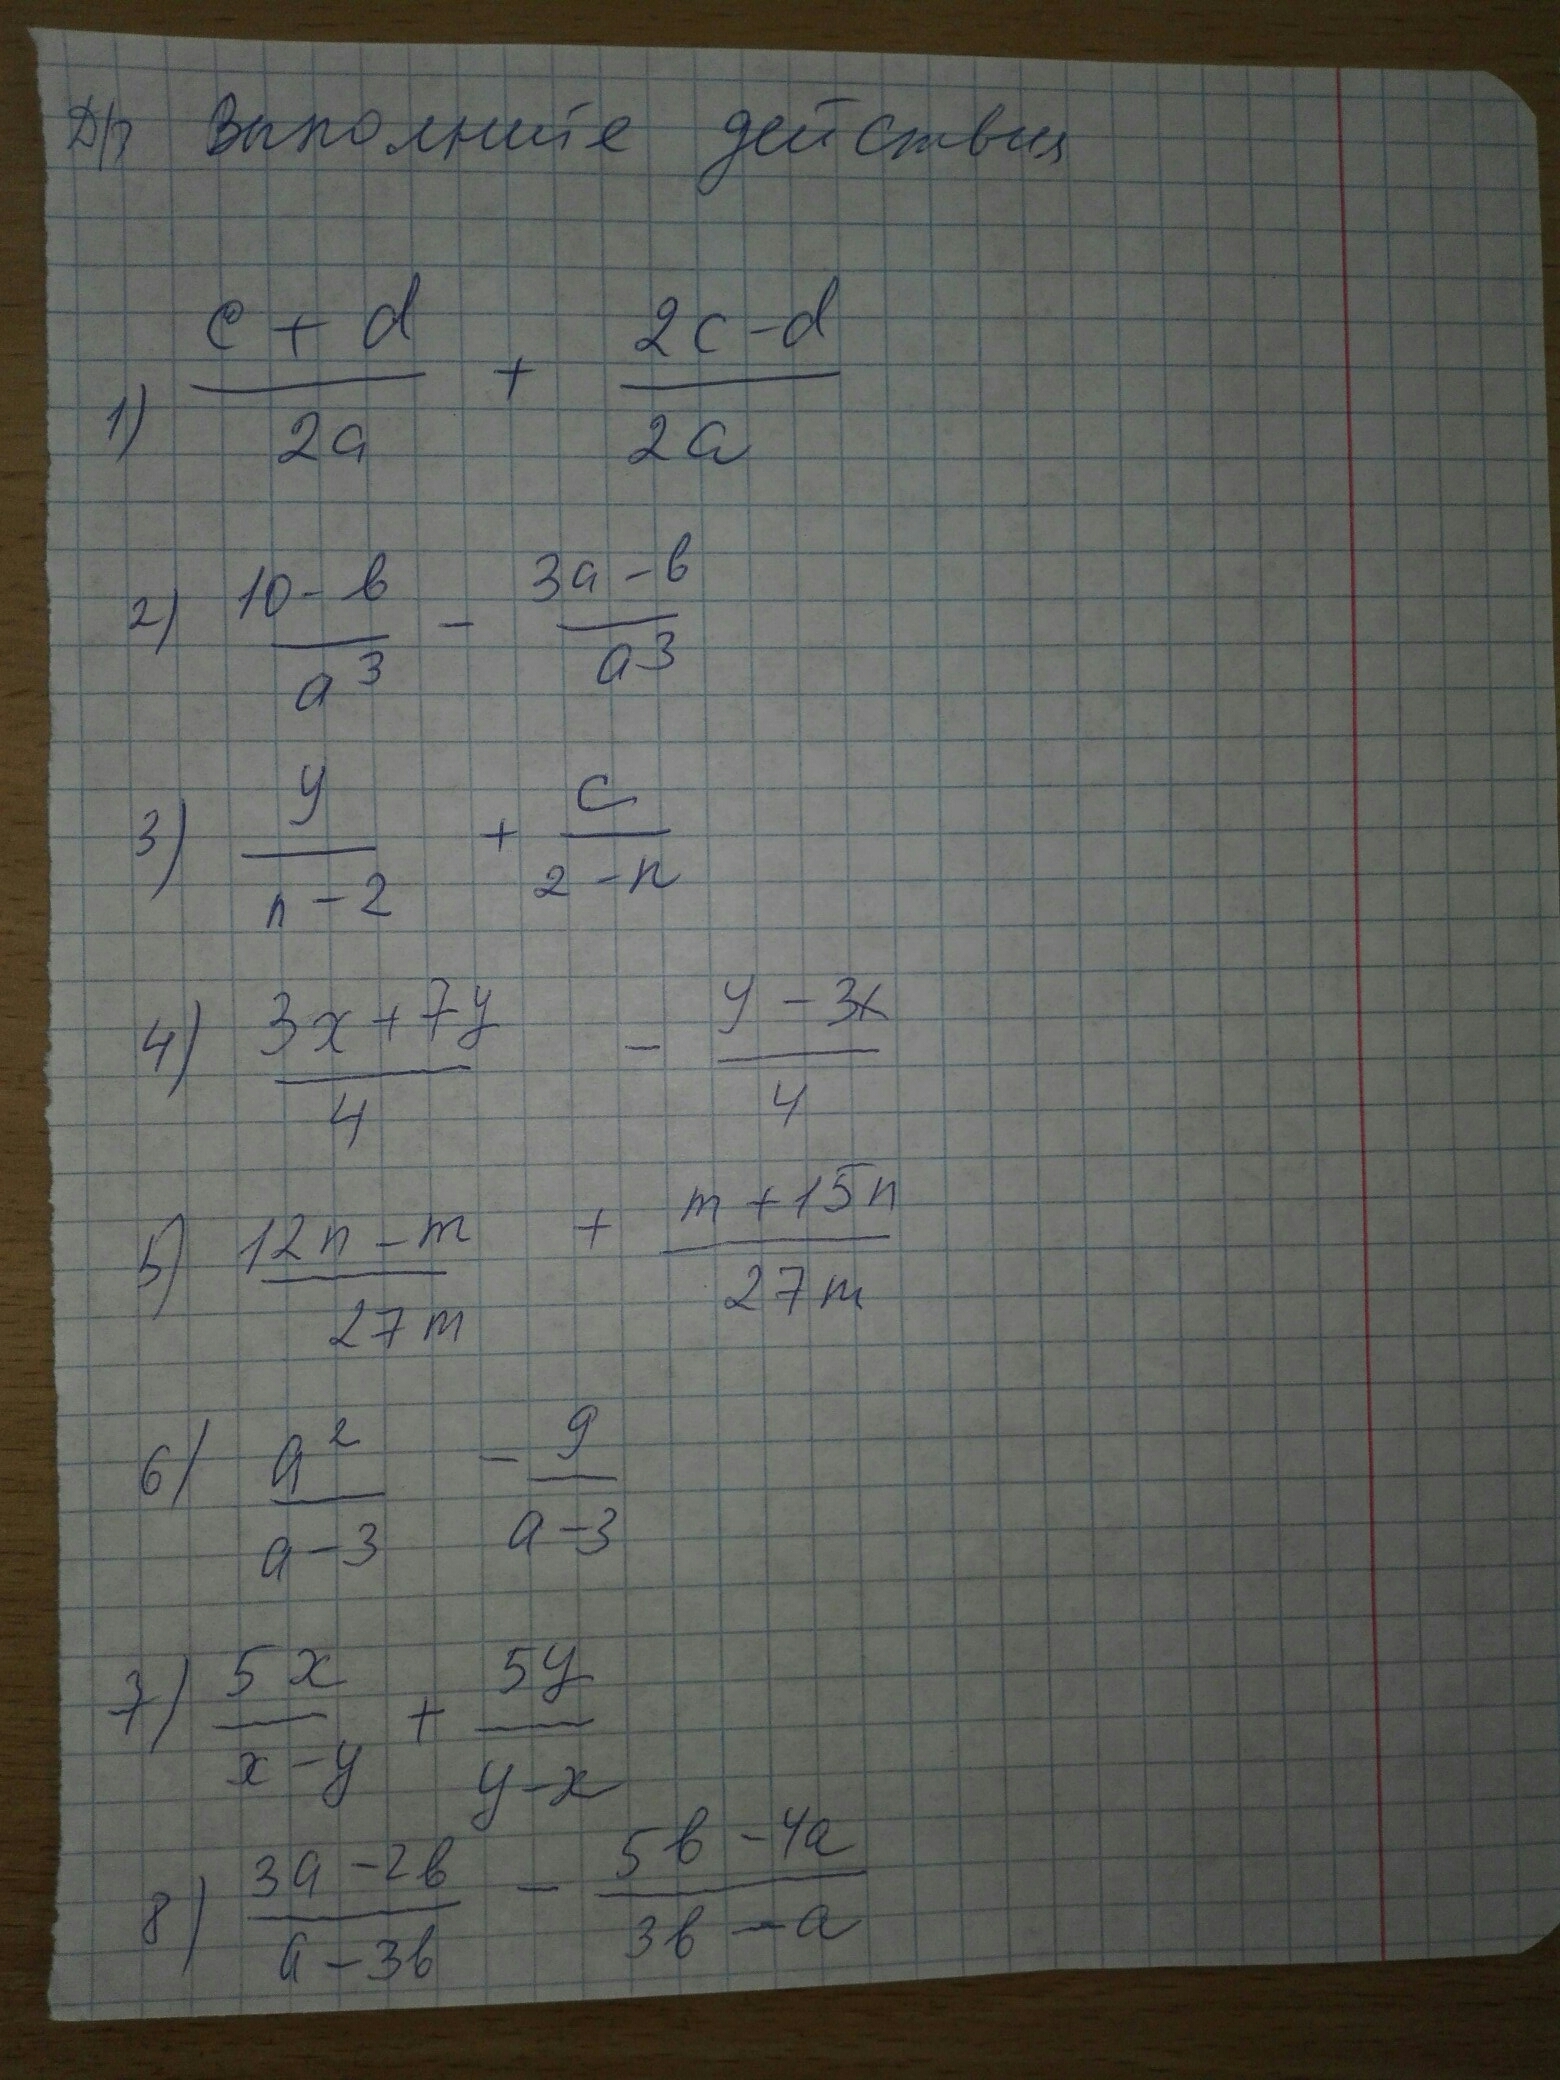 Д/з Выполните действия
1) \frac{c + d}{2a} + \frac{2c - d}{2a}
2) \frac{10 - в}{a^3} - \frac{3a - в}{a^3}
3) \frac{y}{n - 2} + \frac{c}{2 - n}
4) \frac{3x + 7y}{4} - \frac{y - 3x}{4}
5) \frac{12n - m}{27m} + \frac{m + 15n}{27m}
6) \frac{a^2}{a - 3} - \frac{9}{a - 3}
7) \frac{5x}{x - y} + \frac{5y}{y - x}
8) \frac{3a - 2в}{a - 3в} - \frac{5в - 4a}{3в - a}